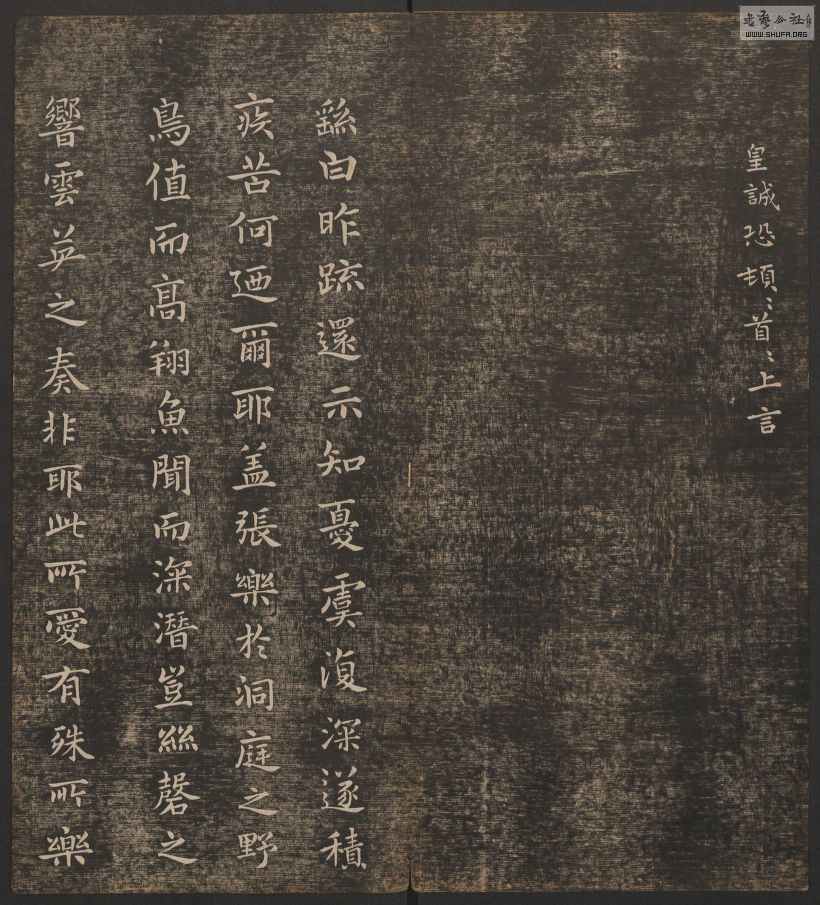 皇誠恐頓〻首〻上言
繇白昨疏還示知憂虞復深遂積
疾苦何迺爾耶盖張樂於洞庭之野
鳥值而高翔魚聞而深潛豈絲磬之
響雲英之奏非耶此所愛有殊所樂
WWW.SHUFA.ORG